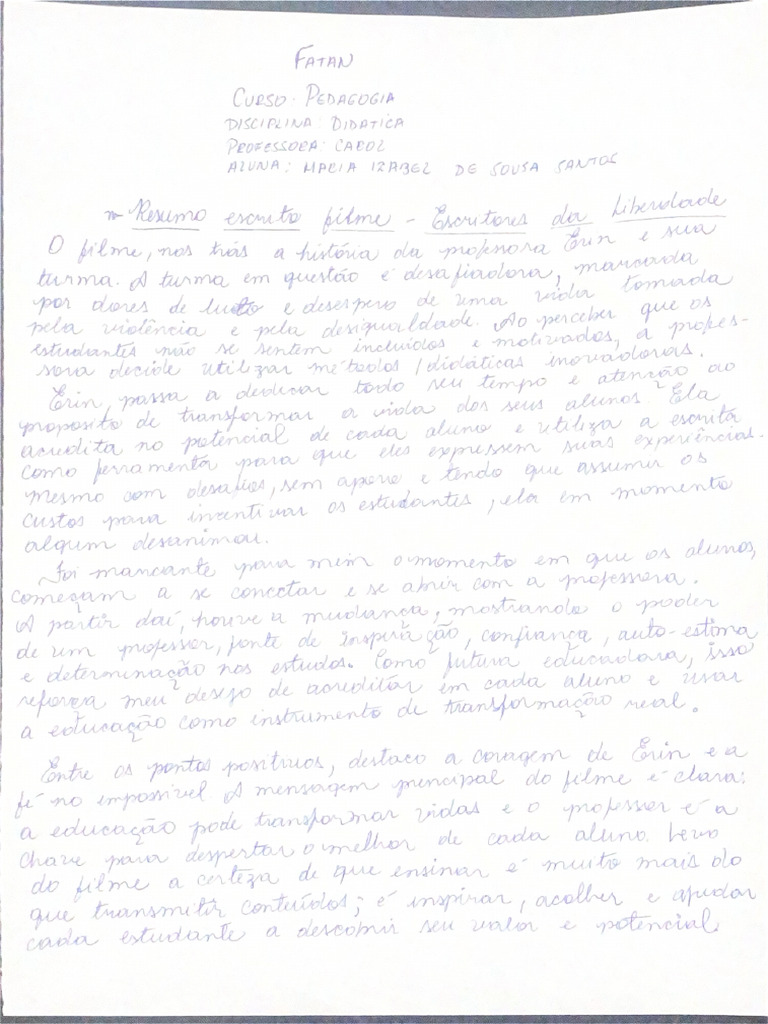 FATAN
CURSO: PEDAGOGIA
DISCIPLINA: DIDATICA
PROFESSORA: CAROL
ALUNA: MARIA IZABEL DE SOUSA SANTOS
Resumo escrito filme - Escritores da Liberdade
O filme, nos trás a história da professora Erin e sua
turma. A turma em questão é desafiadora, marcada
por dores de luto e desespero de uma vida tomada
pela violência e pela desigualdade. Ao perceber que os
estudantes não se sentem incluídos e motivados, a profes-
sora decide utilizar métodos / didáticas inovadoras.
Erin, passa a dedicar todo seu tempo e atenção ao
proposito de transformar a vida dos seus alunos. Ela
acredita no potencial de cada aluno e utiliza a escrita
como ferramenta para que eles expressem suas experiências.
Mesmo com desafios, sem apoio e tendo que assumir os
custos para incentivar os estudantes, ela em momento
algum desanimou.
Foi marcante para mim o momento em que os alunos,
começam a se conectar e se abrir com a professora.
A partir daí, houve a mudança, mostrando o poder
de um professor, fonte de inspiração, confiança, auto-estima
e determinação nos estudos. Como futura educadora, isso
reforça meu desejo de acreditar em cada aluno e usar
a educação como instrumento de transformação real.
Entre os pontos positivos, destaco a coragem de Erin e a
fé no impossível A mensagem principal do filme é clara:
a educação pode transformar vidas e o professor é a
chave para despertar o melhor de cada aluno. Levo
do filme a certeza de que ensinar é muito mais do
que transmitir conteúdos; é inspirar, acolher e ajudar
cada estudante a descobrir seu valor e potencial